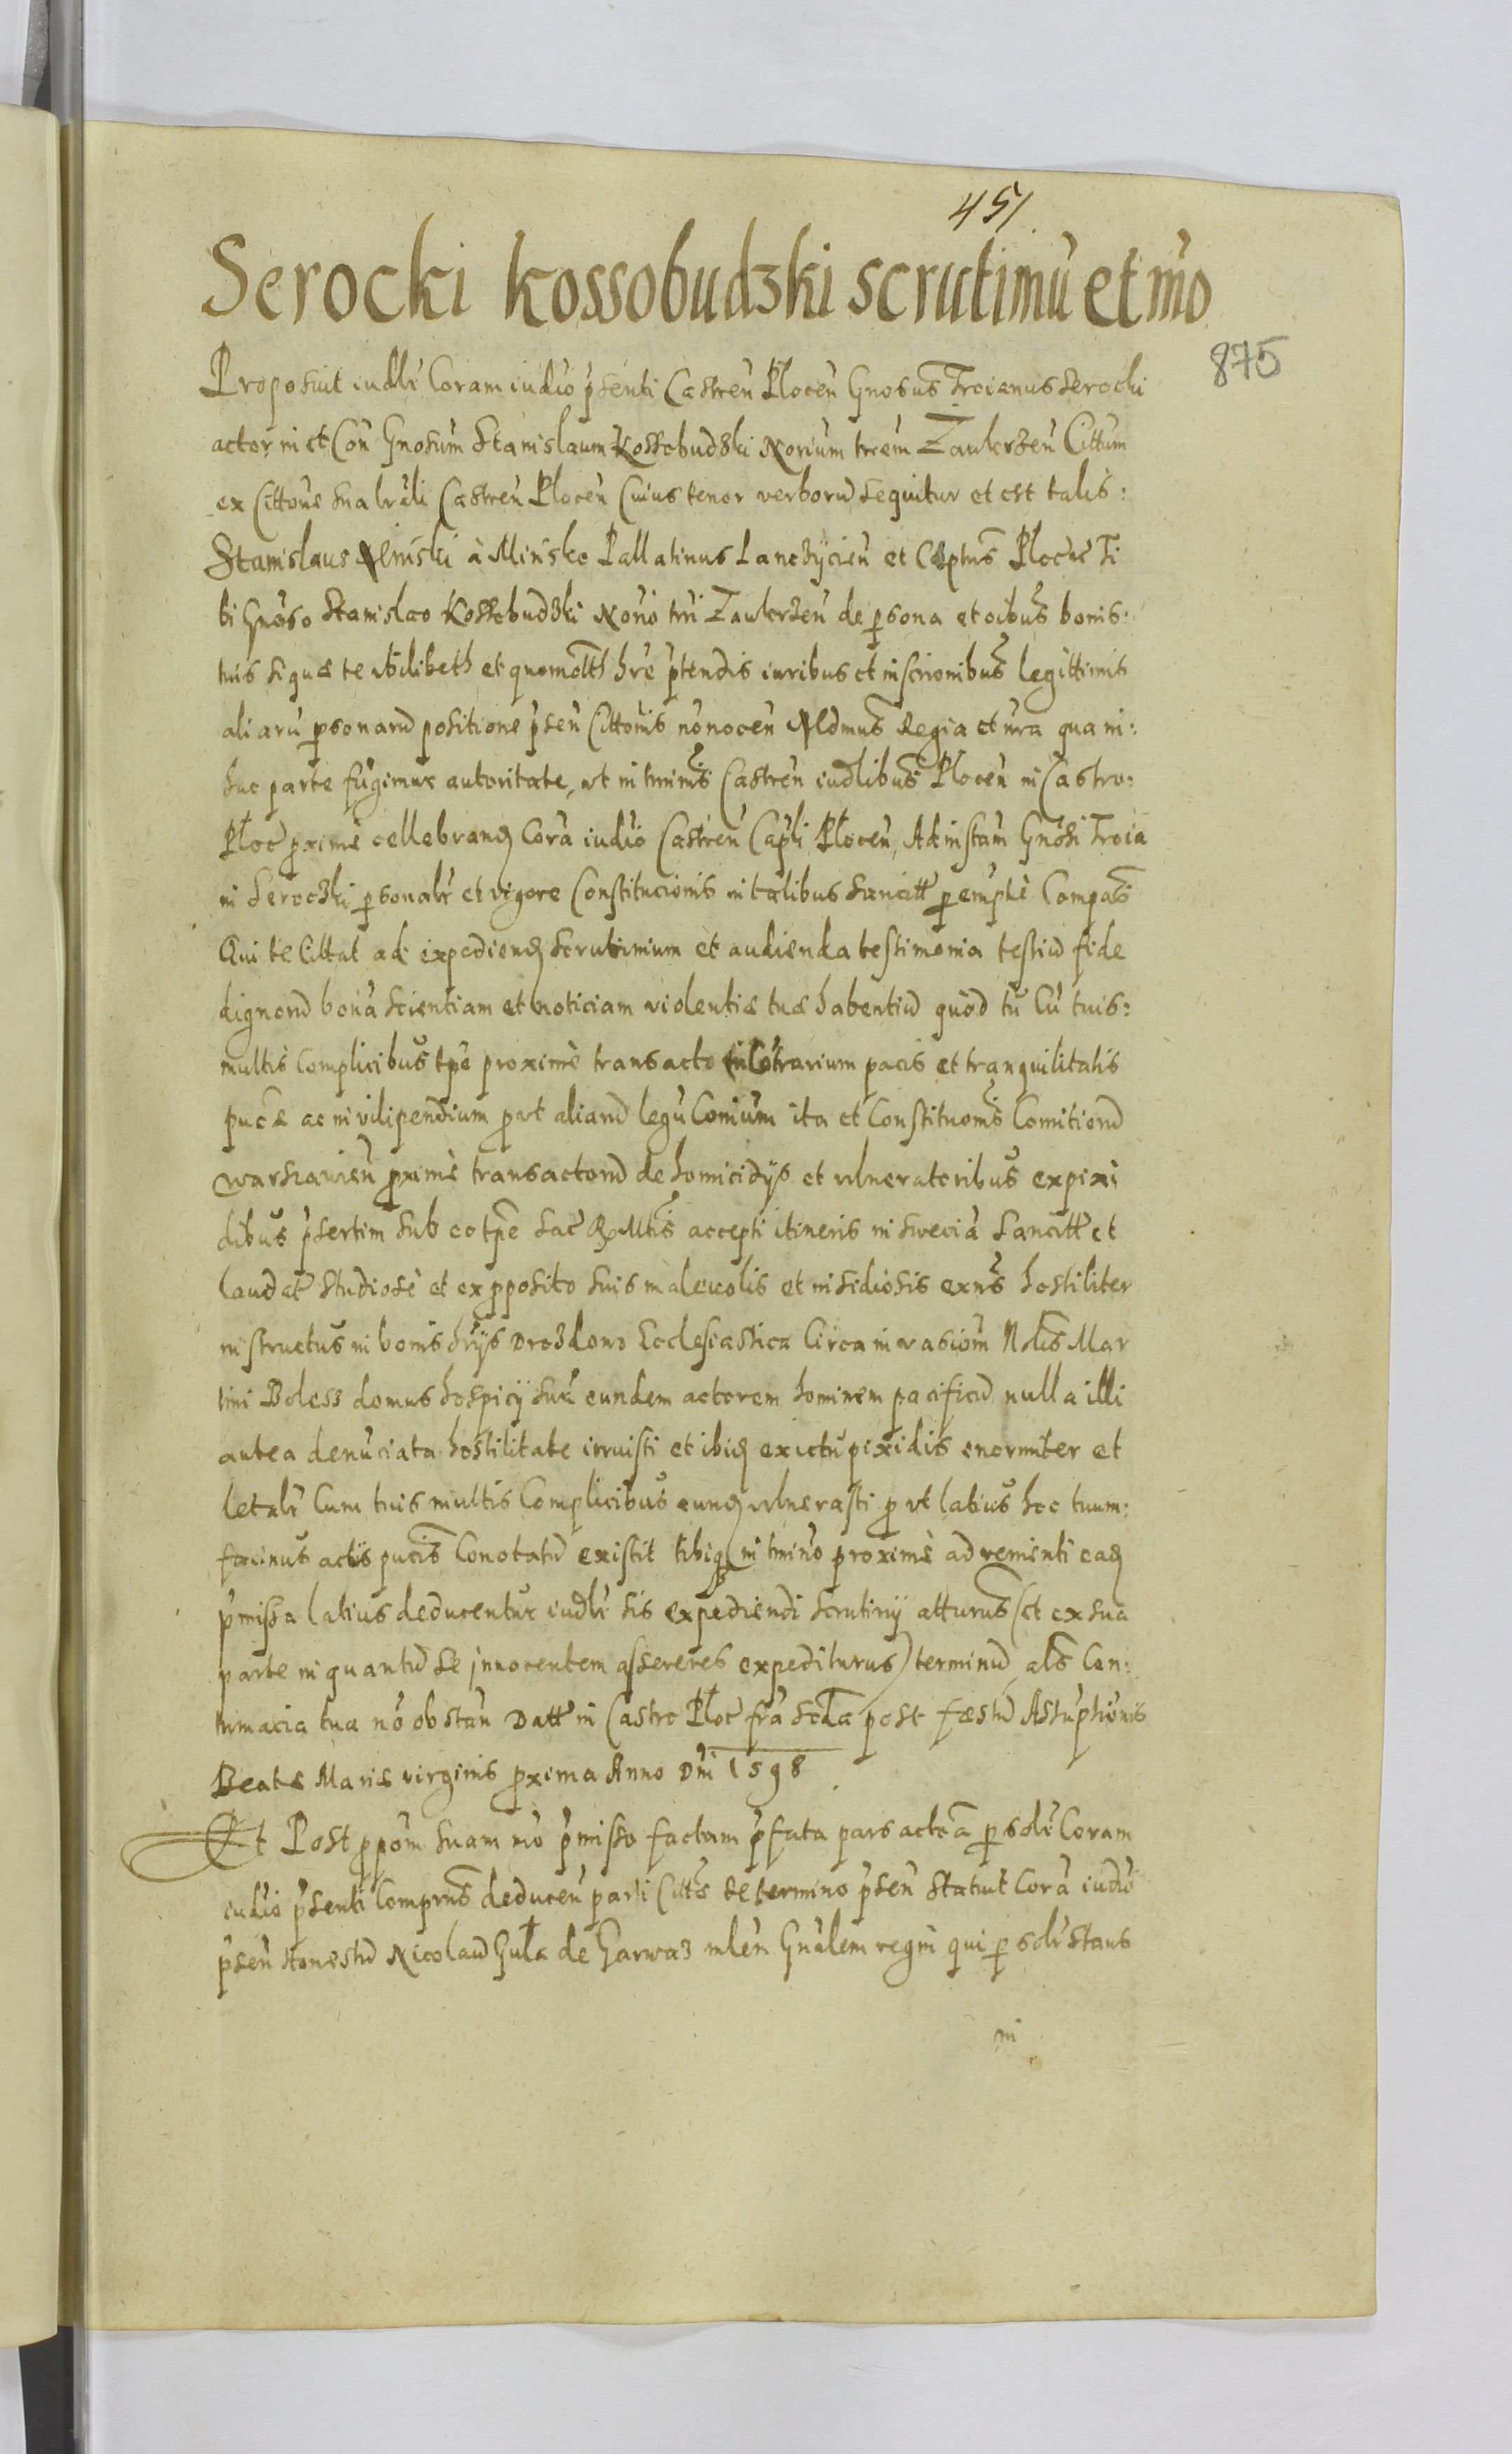 451
Serocki Kossobudzki scrutiniu et mo
875
Proposuit iudlr Coram iudio psenti Castren Plocen Gnosus Troianus Serocki
actor in et Con Gnosum Stanislaum Kossobudzki Notium trem Zawkrzen Cittum
ex Cittone sua lrali Castren Plocen Cuius tenor verborum sequitur et est talis:
Stanislaus Minski à Minsko Pallatinus Lanczycien et Cptus Plocen Ti
bi Gnoso Stanislao Kossobudzki Noto tri Zawkrzen de psona et oibus bonis:
tuis si quae te vbilibeth et quomolth hre ptendis iuribus et inscrionibus legittimis
aliaru psonarum positione psen Cittonis no nocen Mdmus Regia et nra qua in:
hac parte fugimur autoritate, vt in tminis Castren iudlibus Plocen in Castro:
Ploc pxime cellebrand Cora iudio Castren Capli Plocen, Ad instam Gnosi Troia
ni Seroczki psonalr et vigore Constitucionis in talibus sancitt pempte Compas
Qui te Cittat ad expediend scrutinium et audienda testimonia testium fide
dignorum bona scientiam et noticiam violentiae tuae habentium quod tu Cu tuis:
multis Complicibus tpe proxime transacto in Cotrarium pacis et tranquilitatis
pucae ac in vilipendium prt aliarum legu Conium ita et Constitutionis Comitiorum
warszavien pxime transactorum de homicidys et vlneratoribus ex pixi
dibus psertim sub eo tpe Sac R Mtis accepti itineris in Swecia Sancitt et
laudat studiose et ex pposito suis malevolis et insidiosis exns hostiliter
instructus in bonis hrys Drozdowo Ecclesiastica Circa invasiom Nblis Mar
tini Bolesz domus hospicy sui eundem actorem hominem pacificum nulla illi
antea denuciata hostilitate irruisti et ibid ex ictu pixidis enormiter et
letalr Cum tuis multis Complicibus eund vlnerasti pvt latius hoc tuum:
facinus actis pucis Conotatum existit tibiq in tmino proxime advenienti ead
pmissa latius deducentur iudlr sis expediendi scrutiny atturus (et ex sua
parte in quantum se innocentem assereres expediturus) terminum als Con:
tumacia tua no obstan Datt in Castro Ploc fra scda post festum Assuptionis
Beatae Mariae virginis pxima Anno Dni 1598
Et Post ppom suam mo pmisso factam pfata pars actca psolr Coram
iudio psenti Comprns deducen parti Citte de termino psen Statuit Cora iudio
psen Honestum Nicolaum Gula de Garwaz mlen Gnalem regni qui psolr stans
in